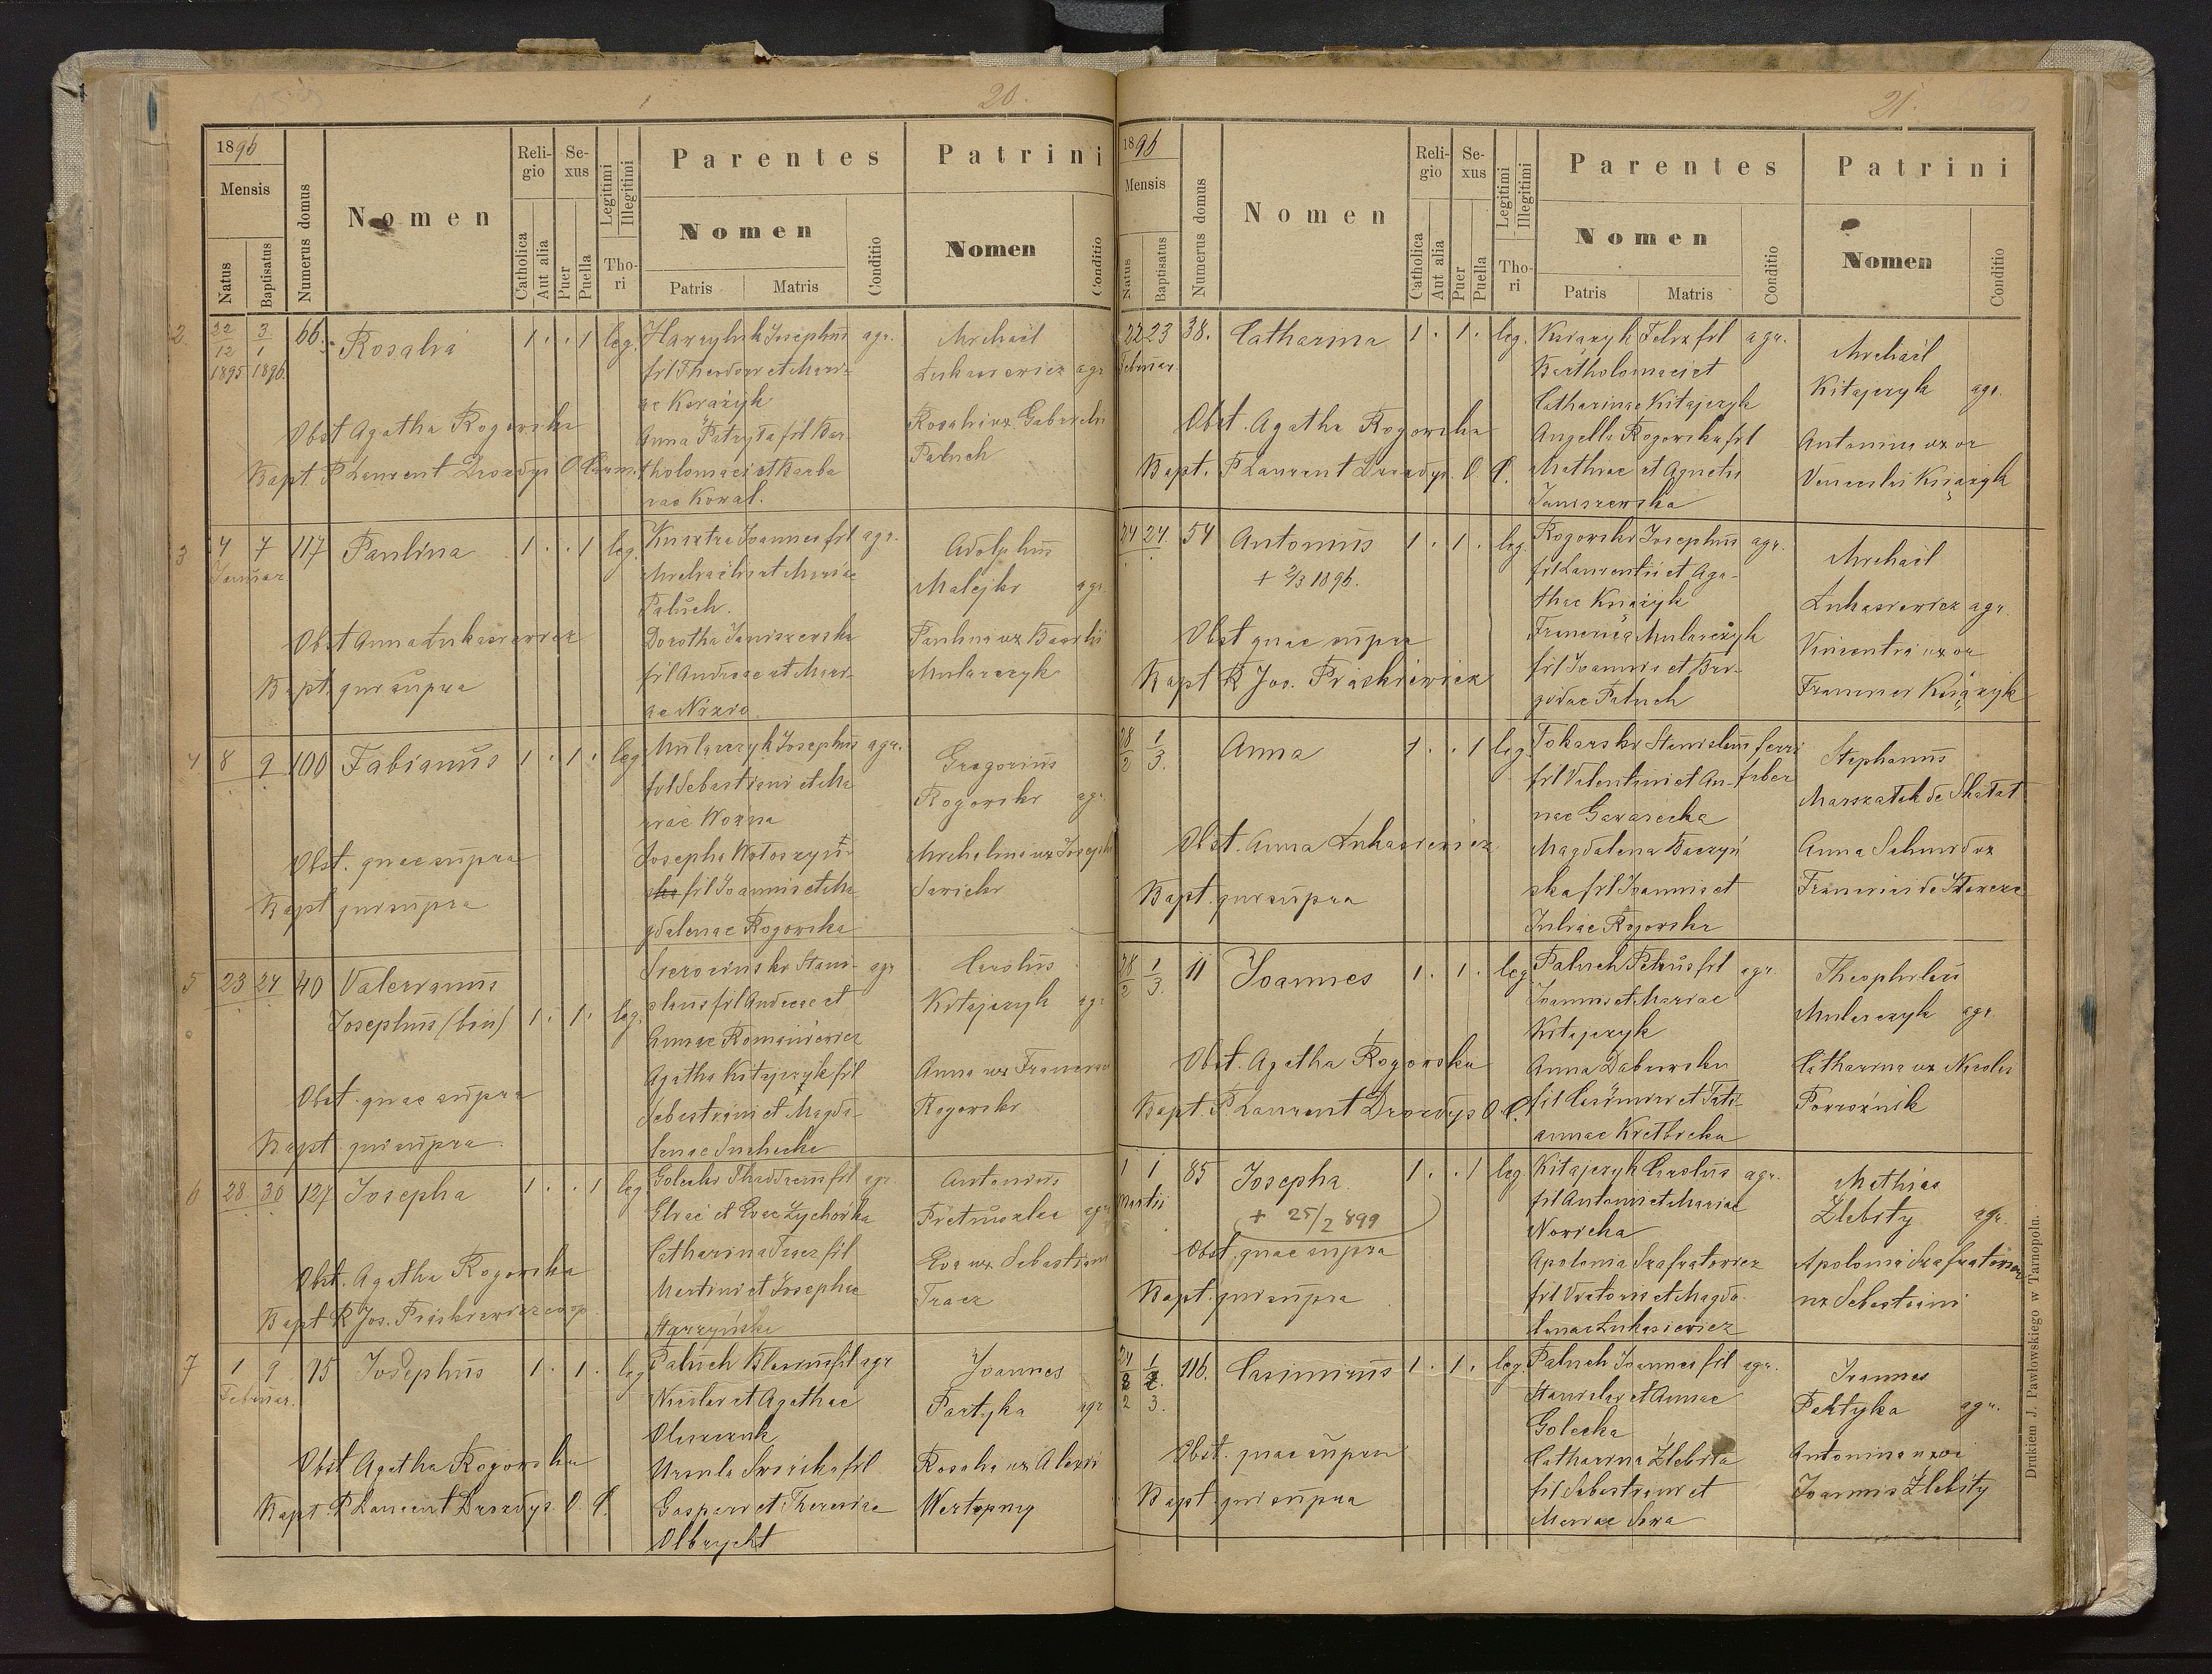 20.
1896
Mensis
Natus
Baptisatus
Numerus domus
Nomen
Religio
Catholica
Aut alia
Sexus
Puer
Puella
Legitimi
Illegitimi
Thori
Parentes
Nomen
Patris
Matris
Conditio
Patrini
Nomen
Conditio
2. 22/12 1895 3/1 1896 66. Rosalia 1 . . 1 leg. Josephus agr.
fil Theodori et Mari-
ae
Anna fil Bar-
tholomaei et Barba
rae Kowal.
Michail
Lukasiewicz agr
Rosalia ux Gabrielis
Paluch
Obst Agatha Rogowska
Bapt P Laurent Drozdys O Carm.
3 4 7 117 Paulina 1 . . 1 leg. Joannes fil agr.
Januar
Michaelis et Mariae
Paluch.
Dorotha Janiszewska
fil Andreae et Mari-
ae
Adolphus
Malejki agr.
Paulina ux Basilii
Mularczyk
Obst Anna Lukasiewicz
Bapt qui supra
4 8 9 100 Fabianus 1 . 1 . leg Mularczyk Josephus agr.
fil Sebastiani et Ma
riae Wozna
Josepha Wołoszyn
fil Joannis et Ma
gdalenae Rogowska
Gregorius
Rogowski agr.
Michalina ux Joseph
Sawicki
Obst. quae supra
Bapt qui supra
5 23 24 40 Valerianus
Josephus (bin) 1 . 1 . leg.
Stani- agr
slaus fil Andreae et
Annae Romaniewicz
Agatha Kitajczyk fil
Sebastiani et Magda-
lenae Suchecka
Carolus
Kitajczyk agr
Anna ux Francisci
Rogowski
Obst. quae supra
Bapt. qui supra.
6 28 30 127 Josepha 1 . . 1 leg Golecki Thaddaeus fil agr.
Eliae et Evae Zychorka
Catharina Tracz fil
Martini et Josephae
Antonius
Pietruszka agr
Eva ux Sebastiani
Tracz
Obst. Agatha Rogowska
Bapt R Jos. Praskiewicz coop.
7 1 9 75 Josephus 1 . 1 . leg Paluch Blasius fil agr
Februar.
Nicolai et Agathae
Oleszczuk
Ursula Sawicka fil
Gaspari et Theresiae
Olbrycht
Joannes
Partyka agr
Rosalia ux Alexii
Wertepny
Obst Agatha Rogowska
Bapt. P Laurent Drozdys O. C.
21.
1896
Mensis
Natus
Baptisatus
Numerus domus
Nomen
Religio
Catholica
Aut alia
Sexus
Puer
Puella
Legitimi
Illegitimi
Thori
Parentes
Nomen
Patris
Matris
Conditio
Patrini
Nomen
Conditio
22 23 38. Catharina 1 . 1 . leg. Kniażyk Felix fil agr.
Februar.
Bartholomaei et
Catharinae Kitajczyk
Angella Rogowska fil
Mathiae et Agnetis
Janiszewska
Michail
Kitajczyk agr.
Antonina uxor
Venceslai Kniażyk
Obst. Agatha Rogowska
Bapt. P Laurent Drozdys. O. C.
24 24 54 Antonius 1 . 1 . leg. Rogowski Josephus agr.
+ 2/3 1896.
fil Laurentii et Aga-
thae Kniażyk
Francisca Mularczyk
fil Joannis et Bri-
gidae Paluch
Michail
Lukasiewicz agr.
Vincentia uxor
Kniażyk
Obst quae supra
Bapt R Jos. Praskiewicz
28/2 1/3. Anna 1 . . 1 leg Tokarski Stanislaus ferri
fil Valentini et An- faber
nae Gawarecka
Magdalena Baczyń
ska fil Joannis et
Juliae Rogowska
Stephanus
Marszałek de Skałat
Anna
Francisci de
Obst. Anna Lukasiewicz
Bapt. qui supra
28/2 1/3. 11 Joannes 1 . 1 . leg Paluch Petrus fil agr.
Joannis et Mariae
Kitajczyk
Anna
fil Casimiri et Tati-
annae
Theophilus
Mularczyk agr.
Catharina ux Nicolai
Powroźnik
Obst. Agatha Rogowska
Bapt. P Laurent Drozdys O. C.
1 1 85 Josepha. 1 . . 1 leg Kitajczyk Carolus agr.
Martii
+ 25/2 899
fil Antonii et Mariae
Nowicka
Apolonia Szafratowicz
fil Viatoris et Magda-
lenae Lukasiewicz
Mathias
Zlebity agr.
Apolonia Szafratowicz
ux Sebastiani
Obst. quae supra
Bapt. qui supra
24/2 1/3. 116. Casimirus 1 . 1 . leg. Paluch Joannes fil agr.
Stanislai et Annae
Golecka
Catharina Zlebita
fil Sebastiani et
Mariae Sowa
Joannes
Partyka agr.
Antonina uxor
Joannis Zlebity
Obst. quae supra
Bapt. qui supra
Drukiem J. Pawłowskiego w Tarnopolu.